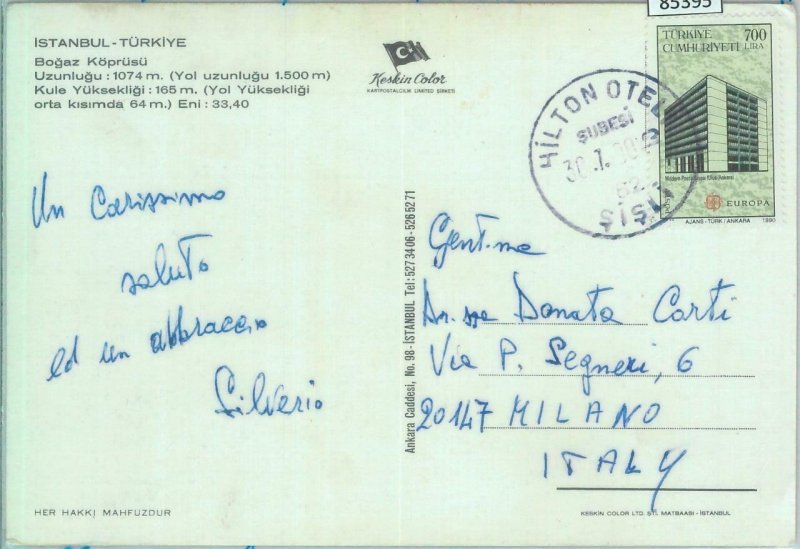 85395
İSTANBUL - TÜRKİYE
Boğaz Köprüsü
Uzunluğu : 1074 m. (Yol uzunluğu 1.500 m)
Kule Yüksekliği : 165 m. (Yol Yüksekliği
orta kısımda 64 m.) Eni : 33,40
Keskin Color
KARTPOSTALCILIK LIMITED ŞİRKETİ
TÜRKİYE 700
CUMHURİYETİ LİRA
EUROPA
AJANS - TÜRK / ANKARA 1990
HILTON OTEL
ŞUBESİ
30.7.
ŞİŞLİ
Un carissimo
saluto
ed un abbraccio
Silverio
Ankara Caddesi, No. 98 - İSTANBUL Tel: 5273406 - 5265271
Gent.ma
Dr.ssa Donata Corti
Via P. Segneri, 6
20147 MILANO
ITALY
HER HAKKI MAHFUZDUR
KESKİN COLOR LTD. ŞTİ. MATBAASI - İSTANBUL